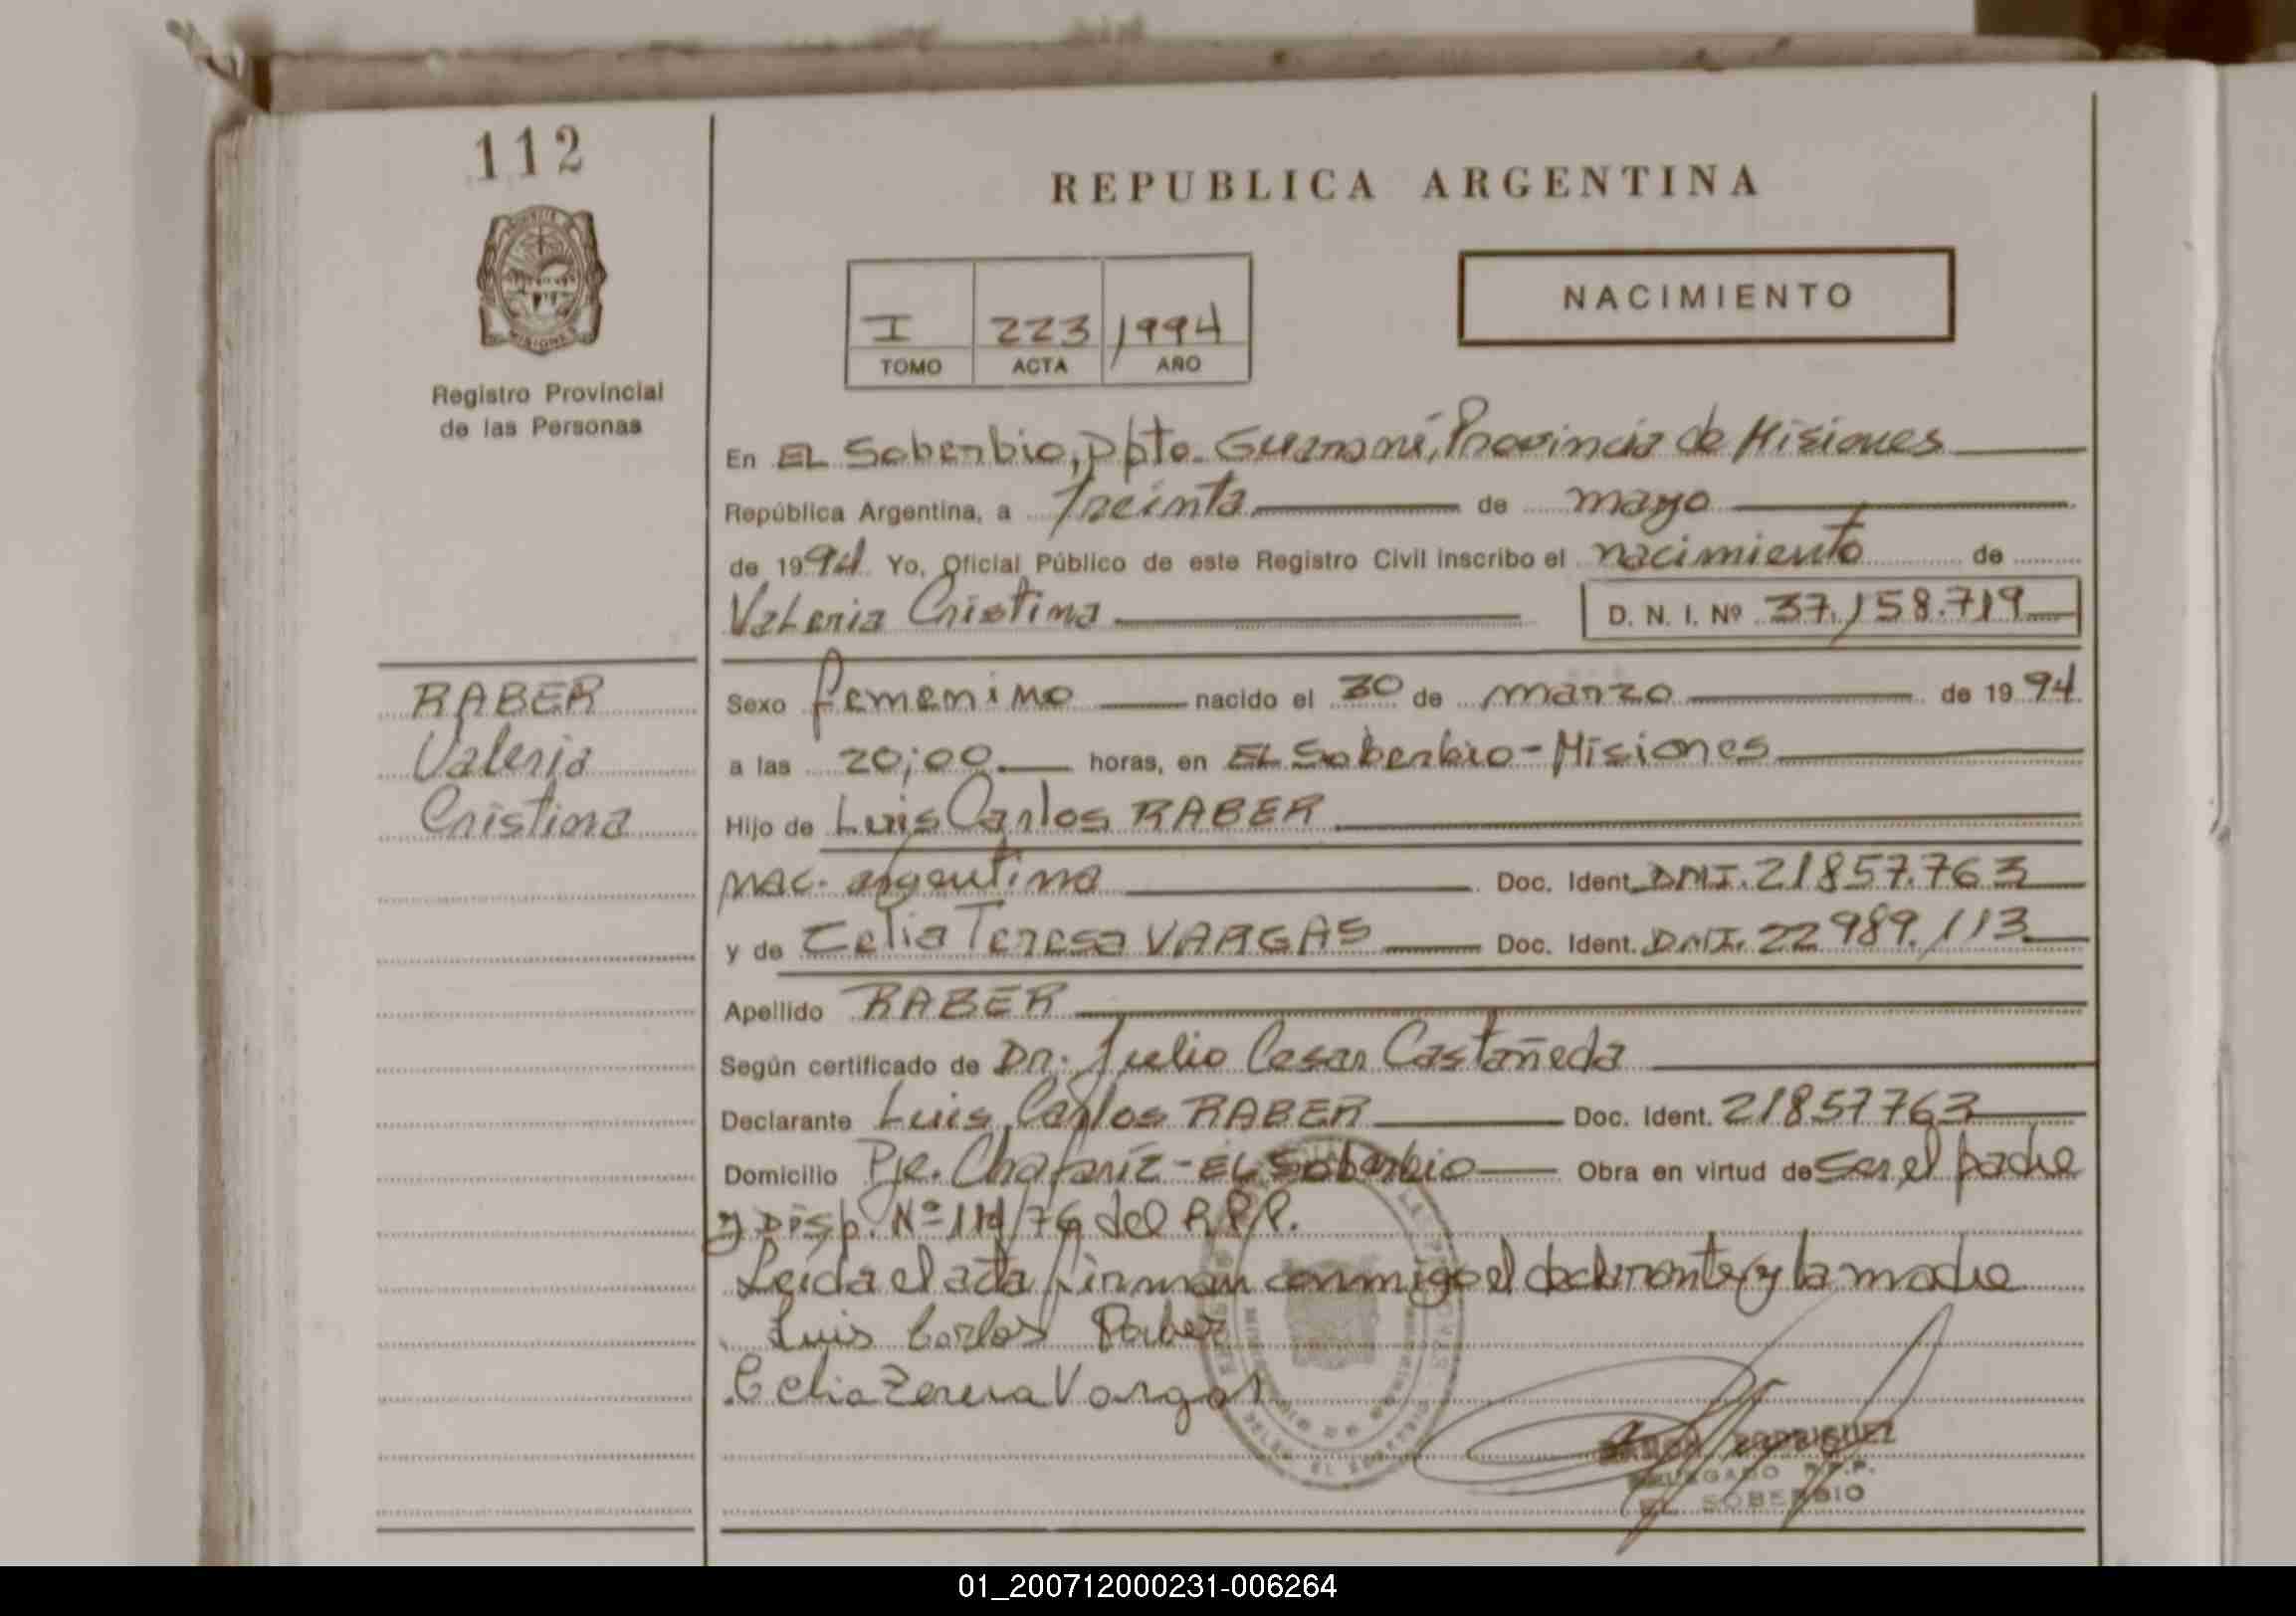 112
REPUBLICA ARGENTINA
NACIMIENTO
I 223 1994
TOMO ACTA AÑO
Registro Provincial
de las Personas
En EL Soberbio, Dpto. Guaraní, Provincia de Misiones
República Argentina, a Treinta de mayo
de 1994 Yo, Oficial Público de este Registro Civil inscribo el nacimiento de
Valeria Cristina D. N. I. Nº 37.158.719
RABER
Valeria
Cristina
Sexo femenino nacido el 30 de marzo de 1994
a las 20;00 horas, en EL Soberbio - Misiones
Hijo de Luis Carlos RABER
nac. argentina Doc. Ident. DNI. 21857.763
y de Celia Teresa VARGAS Doc. Ident. DNI. 22989.113
Apellido RABER
Según certificado de Dr. Julio Cesar Castañeda
Declarante Luis Carlos RABER Doc. Ident. 21857763
Domicilio Pje. Chafariz - EL Soberbio Obra en virtud de ser el padre
y Disp. Nº /76 del R.P.P.
Leida el acta firman conmigo el declarante y la madre
Luis Carlos Raber
Celia Teresa Vargas
RAMON RODRIGUEZ
DELEGADO R.P.P.
EL SOBERBIO
01_200712000231-006264